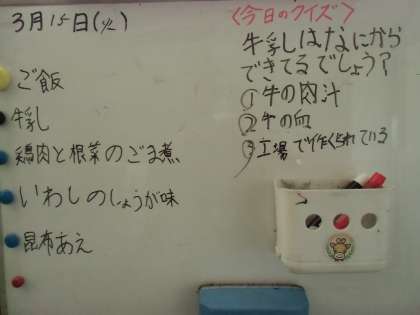 3月15日(火)
ご飯
牛乳
鶏肉と根菜のごま煮
いわしのしょうが味
昆布あえ
<今日のクイズ>
牛乳はなにから
できてるでしょう?
①牛の肉汁
②牛の血
③工場で作くられている